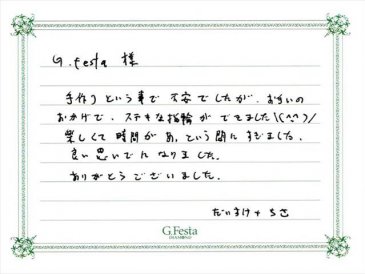 G.festa 様
手作りという事で不安でしたが、お手伝いの
おかげで、ステキな指輪ができました\(^^)/
楽しくて時間があ,という間にすぎました。
良い思いでになりました。
ありがとうございました。
だいすけ + ちさ
G.Festa
DIAMOND